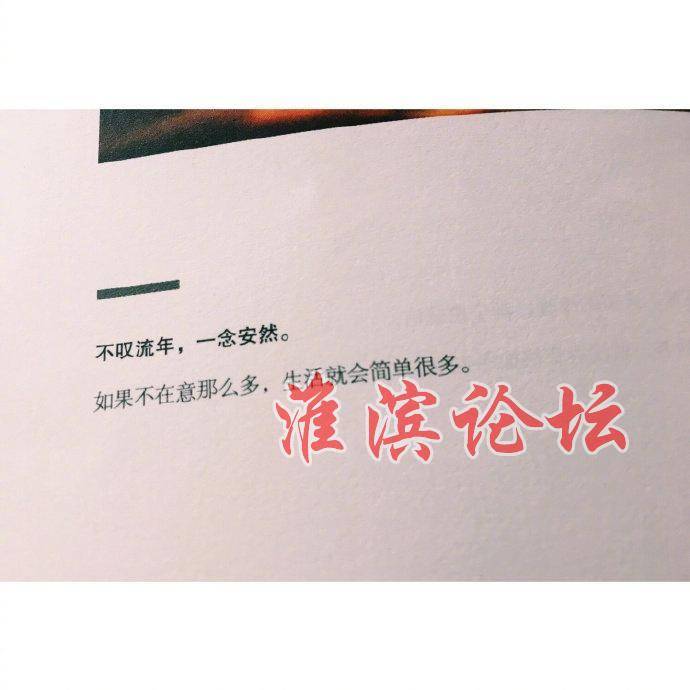 不叹流年，一念安然。
如果不在意那么多，生活就会简单很多。
淮滨论坛